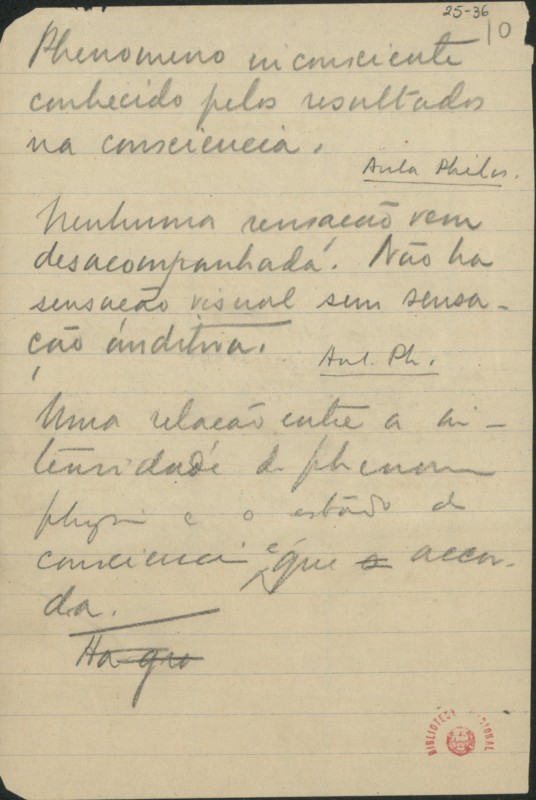 25-36
10
Phenomeno inconsciente
conhecido pelos resultados
na consciencia.
Aula Philos.
Nenhuma sensação vem
desacompanhada. Não ha
sensação visual sem sensa-
ção auditiva.
Aul. Ph.
Uma relação entre a in-
tensidade do phenom
physi e o estado de
conscienci é que o accor-
da.
Ha que
BIBLIOTECA NACIONAL